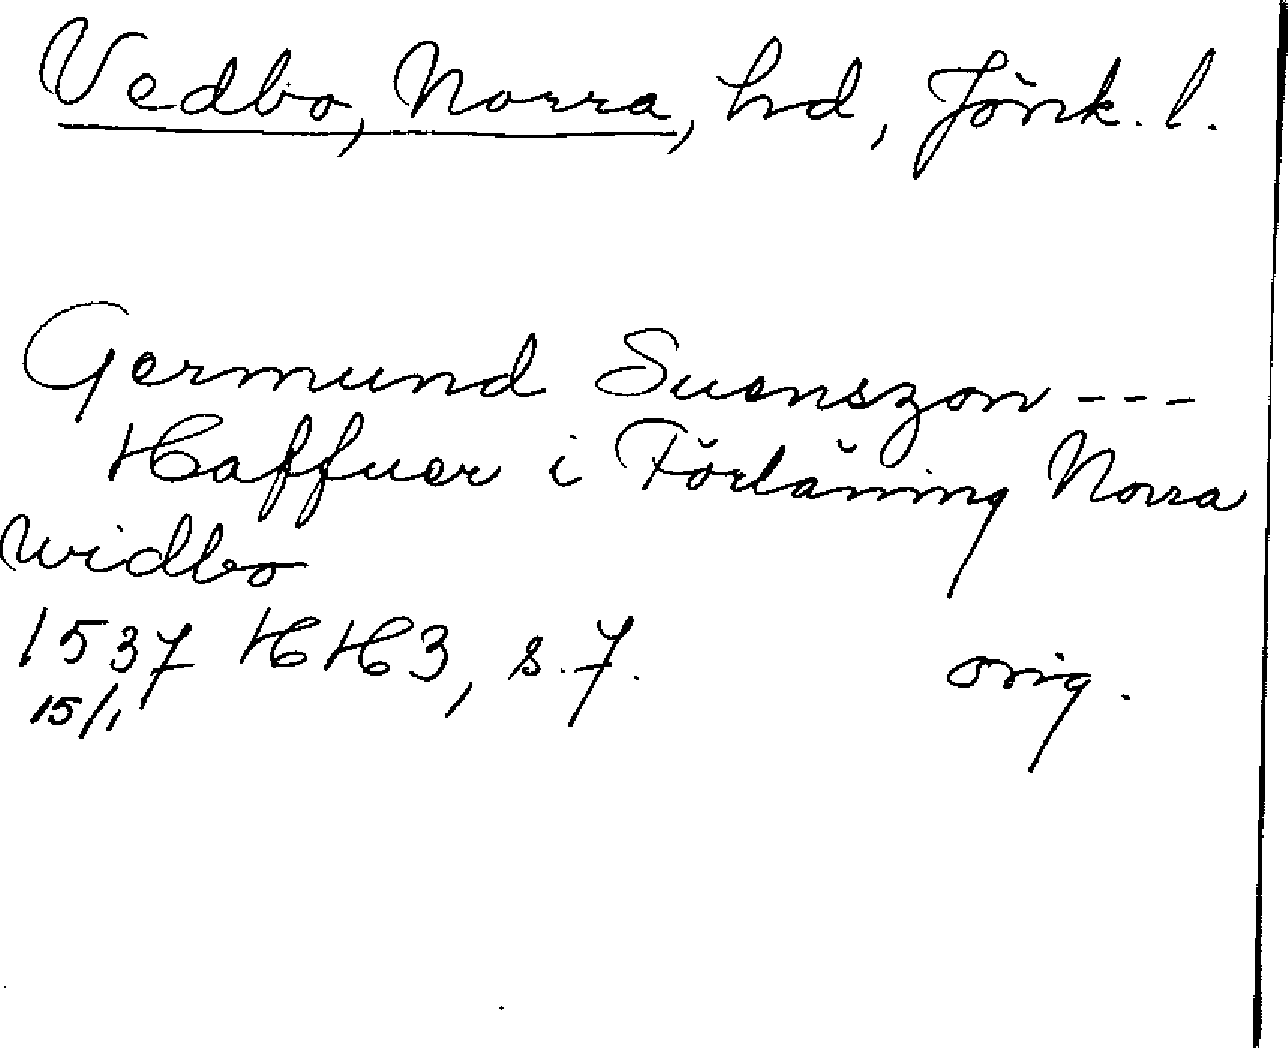 Vedbo, Norra, hd, Jönk. l.
Germund Suenszon ---
Haffuer i Förlåning Norra
widbo
1537 HH3, s. 7. orig.
15/1